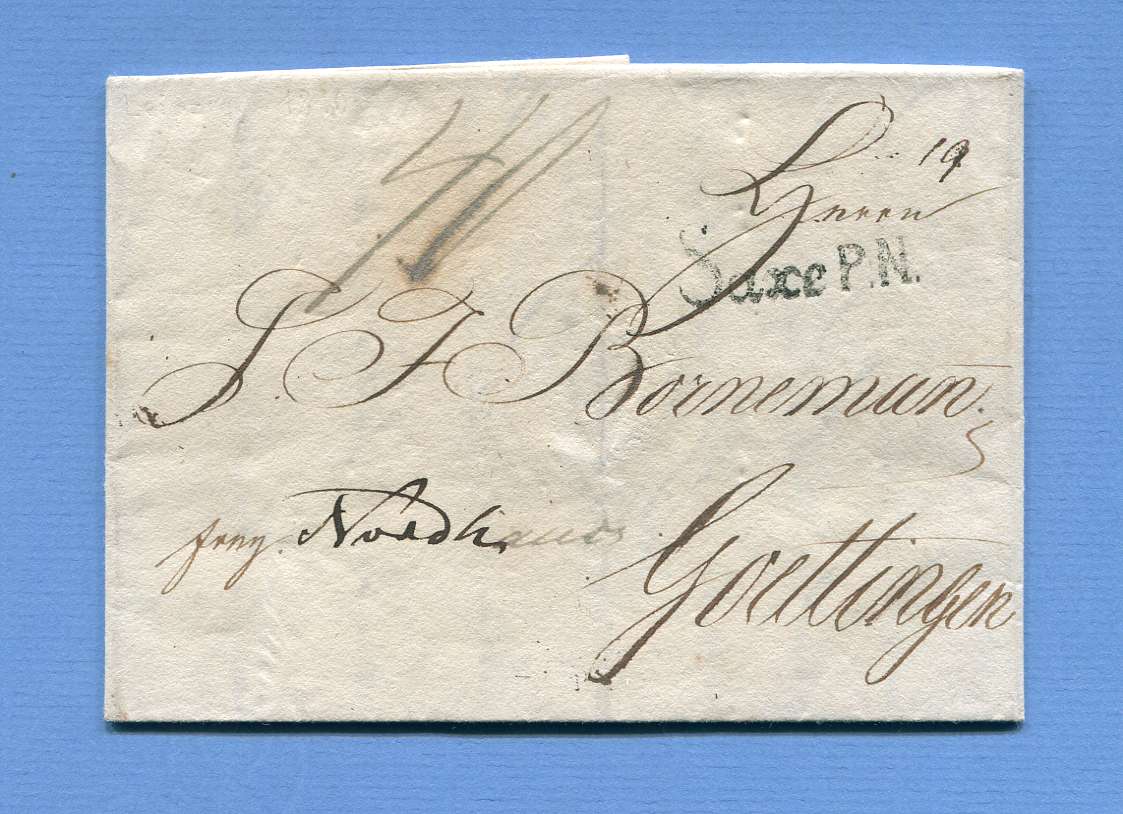 19
Herrn
Saxe P.N.
S F Borneman
frey Nordhaus
Goettingen